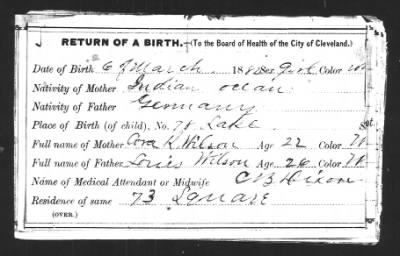 RETURN OF A BIRTH.—(To the Board of Health of the City of Cleveland.)
Date of Birth 6 of March 188 Sex girl Color
Nativity of Mother Indian ocean
Nativity of Father Germany
Place of Birth (of child), No. 78 Lake St.
Full name of Mother Cora K Wilson Age 22 Color
Full name of Father Louis Wilson Age 26 Color
Name of Medical Attendant or Midwife C B Dixon
Residence of same 73 Square
(OVER.)